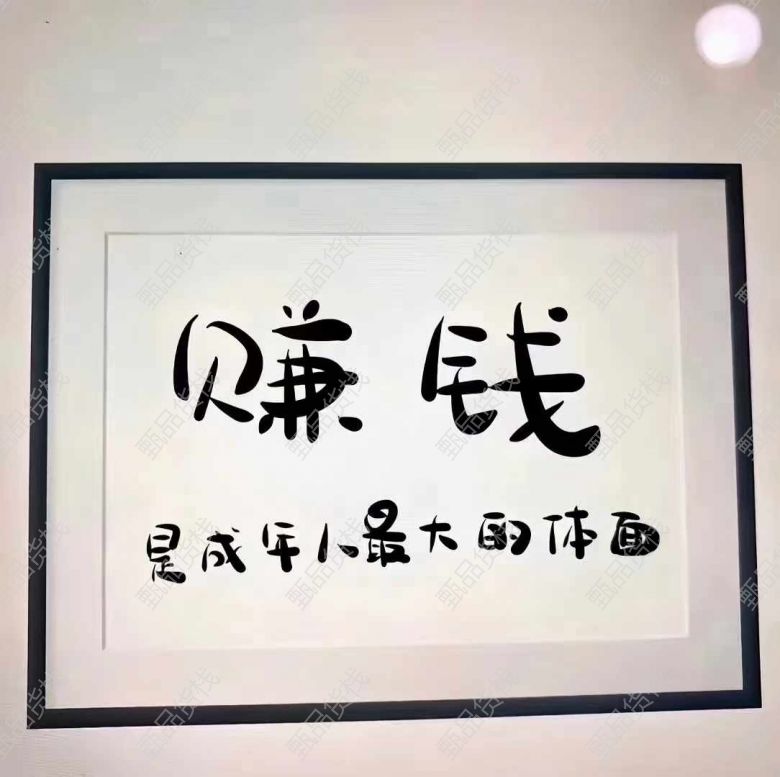 赚钱
是成年人最大的体面
甄品货栈